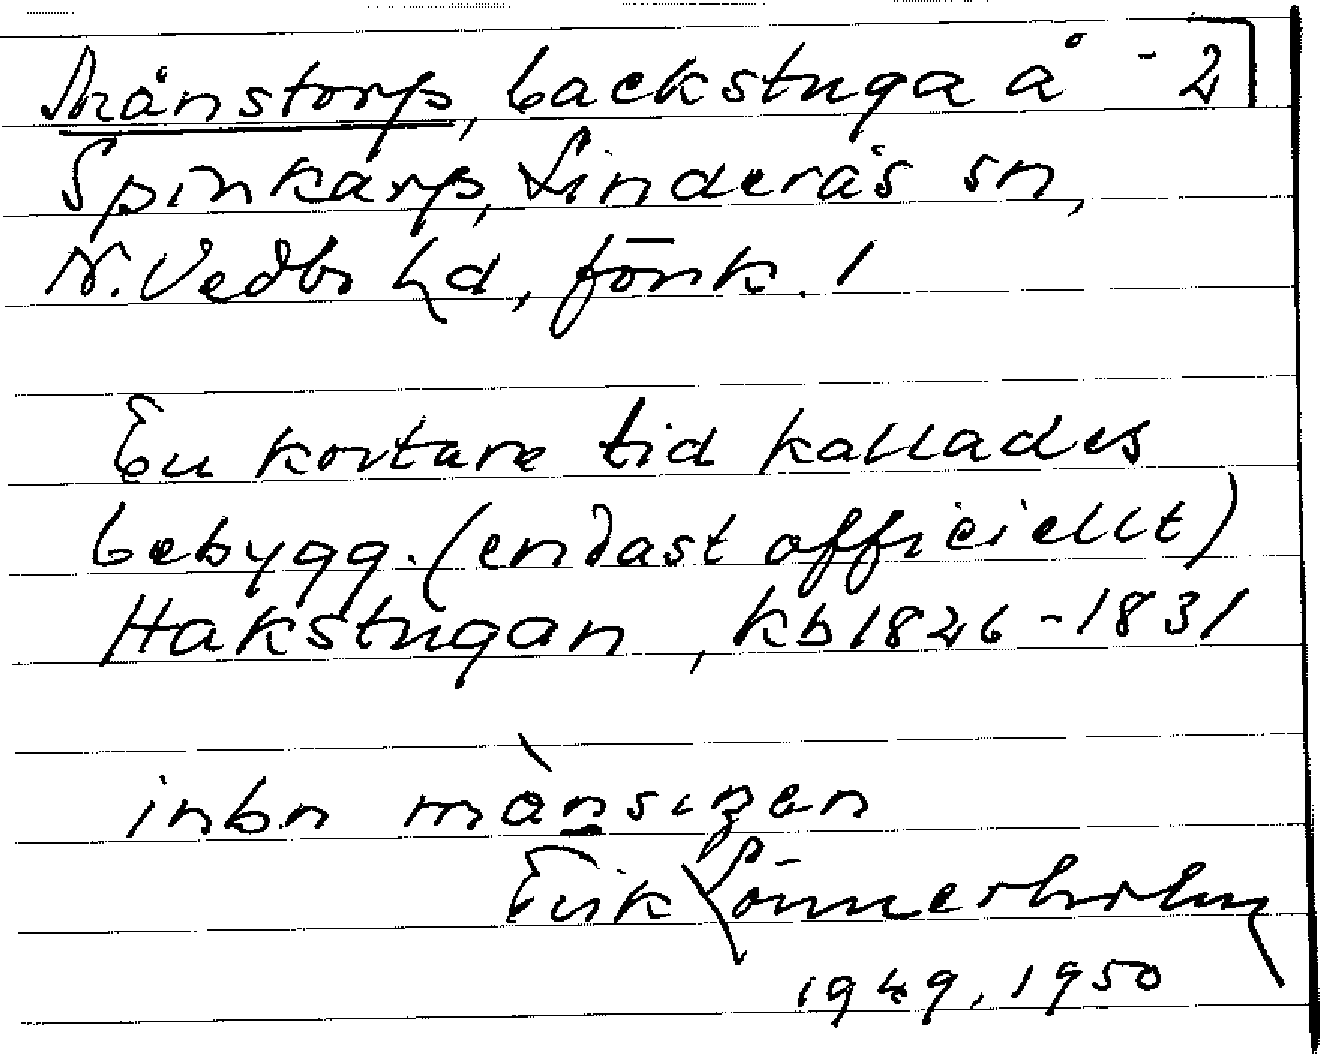 Månstorp, backstuga å - 2
Spinkarp, Linderås sn,
N. Vedbo hd, förk. 1
En kortare tid kallades
bebygg. (endast officiellt)
Hakstugan, kb 1826-1831
inbn
Erik Lönnerholm
1949, 1950